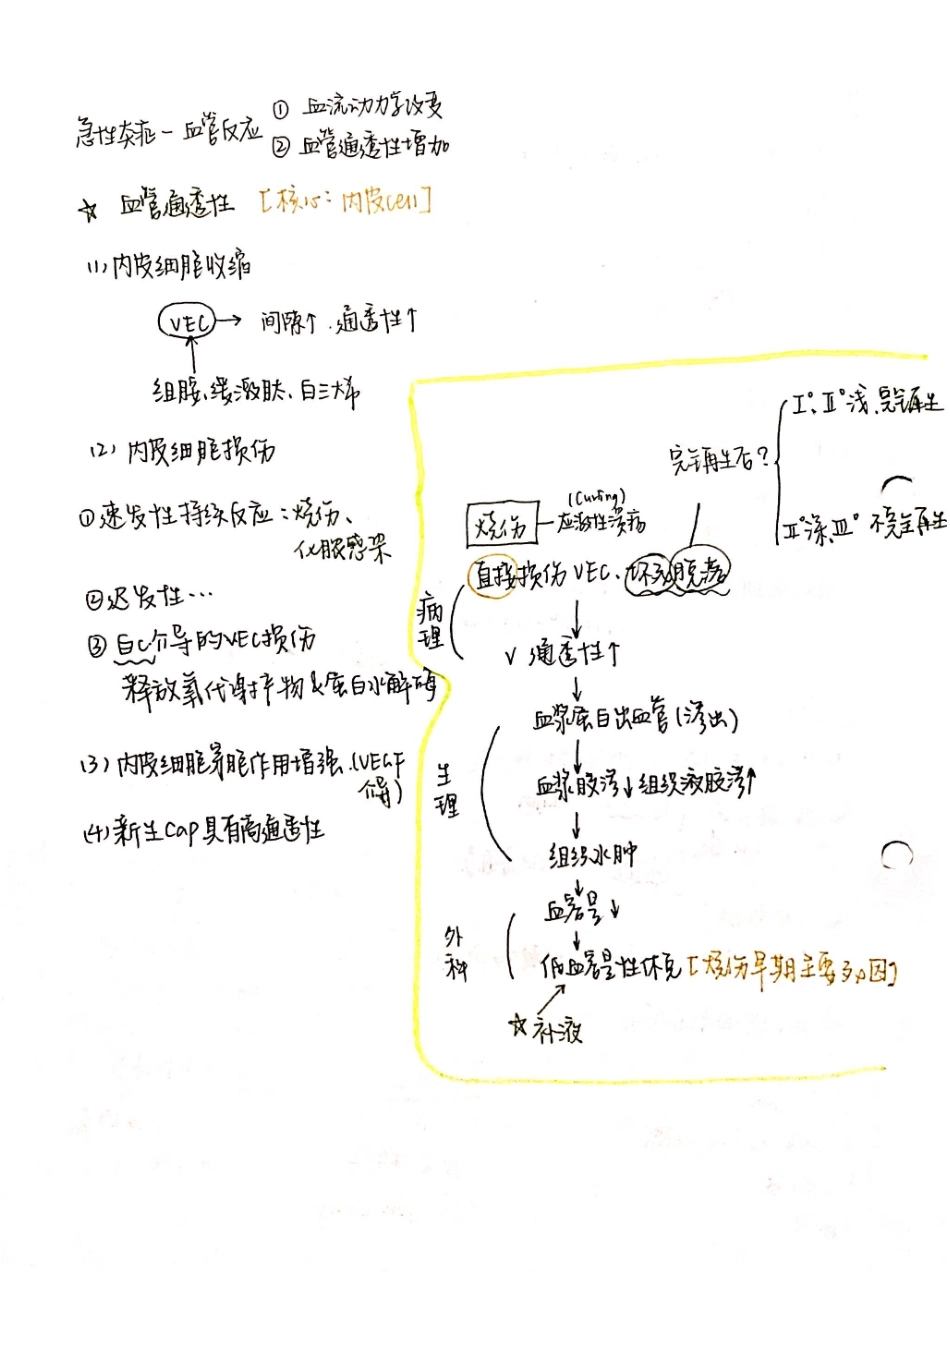 急性炎症-血管反应 ① 血流动力学改变
② 血管通透性增加
☆ 血管通透性 [核心:内皮cell]
(1)内皮细胞收缩
VEC → 间隙↑.通透性↑
组胺、缓激肽、白三烯
(2)内皮细胞损伤
①速发性持续反应:烧伤、
化脓感染
②迟发性…
③白C介导的VEC损伤
释放氧代谢产物&蛋白水解酶
(3)内皮细胞穿胞作用增强.(VEGF
介导)
(4)新生Cap具有高通透性
I°、II°浅.完全再生
完全再生否?
II°深、III° 不完全再生
(Curling)
烧伤 — 应激性溃疡
直接损伤VEC.坏死脱落
病理
↓
V 通透性↑
↓
血浆蛋白出血管(渗出)
↓
生理
血浆胶渗↓组织液胶渗↑
↓
组织水肿
↓
血容量↓
↓
外科
低血容量性休克[烧伤早期主要死因]
☆补液